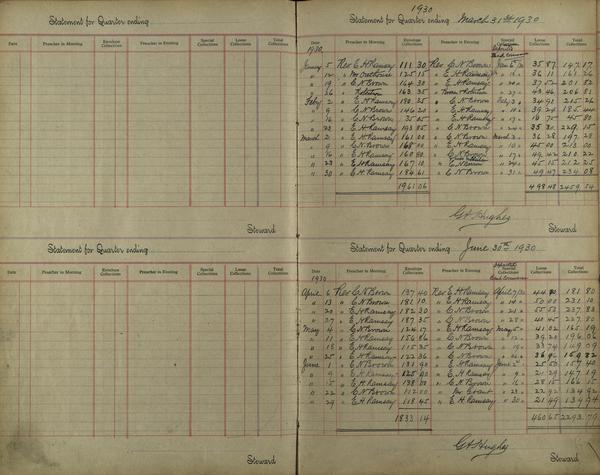 Statement for Quarter ending
Date Preacher in Morning Preacher in Evening Envelope Collections Special Collections Loose Collections Total Collections
Steward
Statement for Quarter ending
Date Preacher in Morning Preacher in Evening Envelope Collections Special Collections Loose Collections Total Collections
Steward
1930
Statement for Quarter ending March 31st 1930
Date Preacher in Morning Envelope Collections Preacher in Evening Special Collections Loose Collections Total Collections
1930
January 5 Rev E H Ramsay 111 30 Rev G N Brown 35 87 147 17
" 12 125 15 " E H Ramsay 36 11 161 26
" 19 " G N Brown 164 30 " E H Ramsay 37 52 201 82
" 26 163 35 43 46 206 81
Feby 2 " E H Ramsay 180 35 " G N Brown 34 91 215 26
" 9 " G N Brown 146 20 " E H Ramsay 39 24 185 44
" 16 " G N Brown 35 05 " E H Ramsay 45 80
" 23 " E H Ramsay 193 85 " G N Brown
March 2 " E H Ramsay 161 00 " G N Brown 36 28 197 28
" 9 " G N Brown 168 00 " E H Ramsay 45 00 213 00
" 16 " E H Ramsay 160 80 " G N Brown 49 42 210 22
" 23 " E H Ramsay 167 10 45 15 212 25
" 30 " E H Ramsay 184 61 " G N Brown 49 47 234 08
1961 06 498 48 2459 54
G H Hughes
Steward
Statement for Quarter ending June 30th 1930
Date Preacher in Morning Envelope Collections Preacher in Evening Special Collections Loose Collections Total Collections
1930
April 6 Rev G N Brown 137 40 Rev E H Ramsay 44 40 181 80
" 13 " G N Brown 181 10 " E H Ramsay 50 00 231 10
" 20 " E H Ramsay 182 30 " G N Brown 55 50 237 80
" 27 " E H Ramsay 187 35 " G N Brown 40 45 227 80
May 4 " G N Brown 124 17 " E H Ramsay 41 02 165 19
" 11 " E H Ramsay 156 86 " G N Brown 39 20 196 06
" 18 " E H Ramsay 115 35 " G N Brown 33 74 149 09
" 25 " E H Ramsay 122 36 " G N Brown
June 1 " G N Brown 131 90 " E H Ramsay 25 50 157 40
" 9 " E H Ramsay 125 90 " G N Brown 21 29 147 19
" 15 " E H Ramsay 138 00 " G N Brown 28 15 166 15
" 22 " G N Brown 112 00 " Mr Grant 22 92 134 92
" 29 " E H Ramsay 118 45 " E H Ramsay 21 49 139 94
1833 14 460 65 2293 79
G H Hughes
Steward